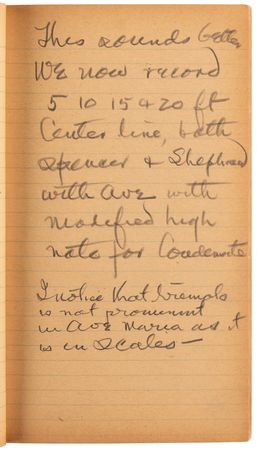 This sounds better
We now record
5 10 15 & 20 ft
Center line, both
Spencer & Shephard
with Ave with
modified high
note for
I notice that tremolo
is not prominent
in Ave Maria as it
is in scales —